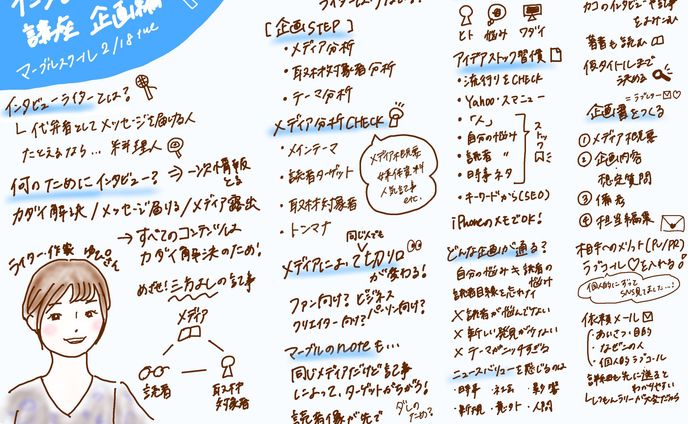 講座 企画編
マーブルスクール 2/18 tue
インタビューライターとは？
└ 代弁者としてメッセージを届ける人
たとえるなら… 料理人
何のためにインタビュー？ → 一次情報をとる
カダイ解決／メッセージ届ける／メディア露出
→ すべてのコンテンツは
カダイ解決のため！
ライター・作家
めざせ！三方よしの記事
メディア
読者
取材対象者
[企画STEP]
・メディア分析
・取材対象者分析
・テーマ分析
メディア分析CHECK
・メインテーマ
・読者ターゲット
・取材対象者
・トンマナ
メディア概要
媒体資料
人気記事
etc.
同じ人でも
メディアによって切り口
が変わる！
ファン向け？ ビジネス
クリエイター向け？ パーソン向け？
マーブルのnoteも…
同じメディアだけど記事
によって、ターゲットがちがう！
読者像が先で
ダレの
ため？
ヒト 悩み ワダイ
アイデアストック習慣
・流行りをCHECK
・Yahoo・スマニュー
・「人」
・自分の悩み
・読者 〃
・時事ネタ
ストック
・キーワードから(SEO)
iPhoneのメモでOK！
どんな企画が通る？
自分の悩み≒読者の
悩み
読者目線を忘れずイ
×読者が悩んでない
×新しい発見がない
×テーマがニッチすぎる
ニュースバリューを感じるのは
・時事 ・社会 ・影響
・新規 ・意外 ・人間
カコのインタビュー記事
をよみこむ
著書も読む
仮タイトルまで
決める
＝ラブレター
企画書をつくる
①メディア概要
②企画内容
想定質問
③備考
④担当編集
相手へのメリット(PV/PR)
ラブコール♡を入れる！
個人的にずっと
SNS見てました…！
依頼メール
・あいさつ・目的
・なぜこの人
・個人的ラブコール
企画書も先に送ると
わかりやすい